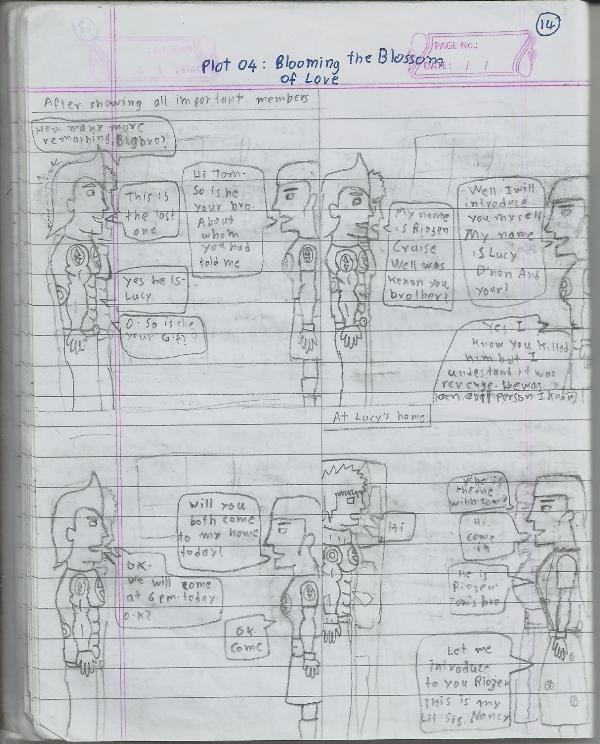 14
PAGE NO.:
DATE: / /
Plot 04: Blooming the Blossom
of Love
After showing all important members
How many more
remaining, Bigbro?
This is
the last
one
Hi Tom.
So is he
your bro.
About
whom
you had
told me
yes he is.
Lucy.
O. So is she
your G.f?
My name
is Riozen
Cruise
Well was
Kenon you
brother?
Well I will
introduce
you myself
My name
is Lucy
D'non And
your?
Yes, I
know you killed
him but I
undestand it was
revenge. He was
own evel person I know
At Lucy's home
Will you
both come
to my home
today?
OK.
We will come
at 6 pm. today.
O.K?
OK
Come
Hi
Who is
the one
with
Hi
come
in
He is
Riozen
bro
Let me
introduce
to you Riozen
This is my
Lil Sis. Nancy